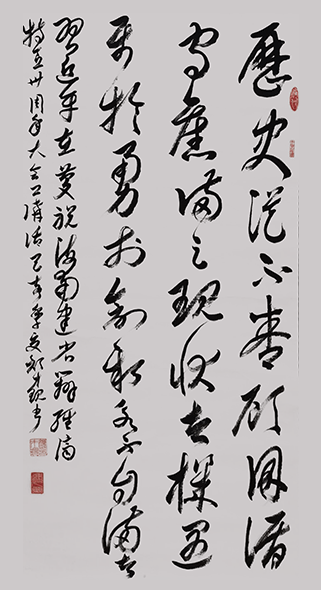 歷史從不眷顧因循
守舊滿足現狀者機遇
屬於勇於創新永不自滿者
習近平在慶祝海南建省辦經濟
特區卅周年大會上講話己亥季夏